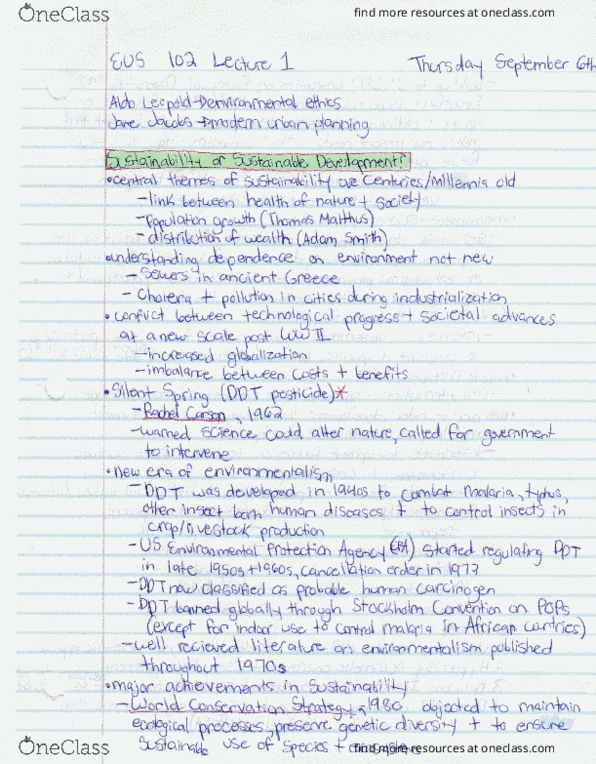 OneClass
find more resources at oneclass.com
EUS 102 Lecture 1 Thursday September 6th
Aldo Leopold→environmental ethics
Jane Jacobs→modern urban planning
Sustainability or Sustainable Development?
•central themes of sustainability are centuries/millennia old
–link between health of nature + society
–population growth (Thomas Malthus)
–distribution of wealth (Adam Smith)
•understanding dependence on environment not new
–Sewers in ancient Greece
–Cholera + pollution in cities during industrialization
•conflict between technological progress + societal advances
at a new scale post WWII
–increased globalization
–imbalance between costs + benefits
•Silent Spring (DDT pesticide)*
–Rachel Carson, 1962
–warned science could alter nature, called for government
to intervene
•new era of environmentalism
–DDT was developed in 1940s to combat malaria, typus,
other insect born human diseases + to control insects in
crop/livestock production
–US Environmental Protection Agency (EPA) started regulating DDT
in late 1950s+1960s, cancellation order in 1973
–DDT now classified as probable human carcinogen
–DDT banned globally through Stockholm Convention on POPs
(except for indoor use to control malaria in African contries)
–well recieved literature on environmentalism published
throughout 1970s
•major achievements in Sustainability
–World Conservation Strategy, 1980 objected to maintain
ecological processes, preserve genetic diversity + to ensure
Sustainable use of species +
OneClass
find more resources at oneclass.com